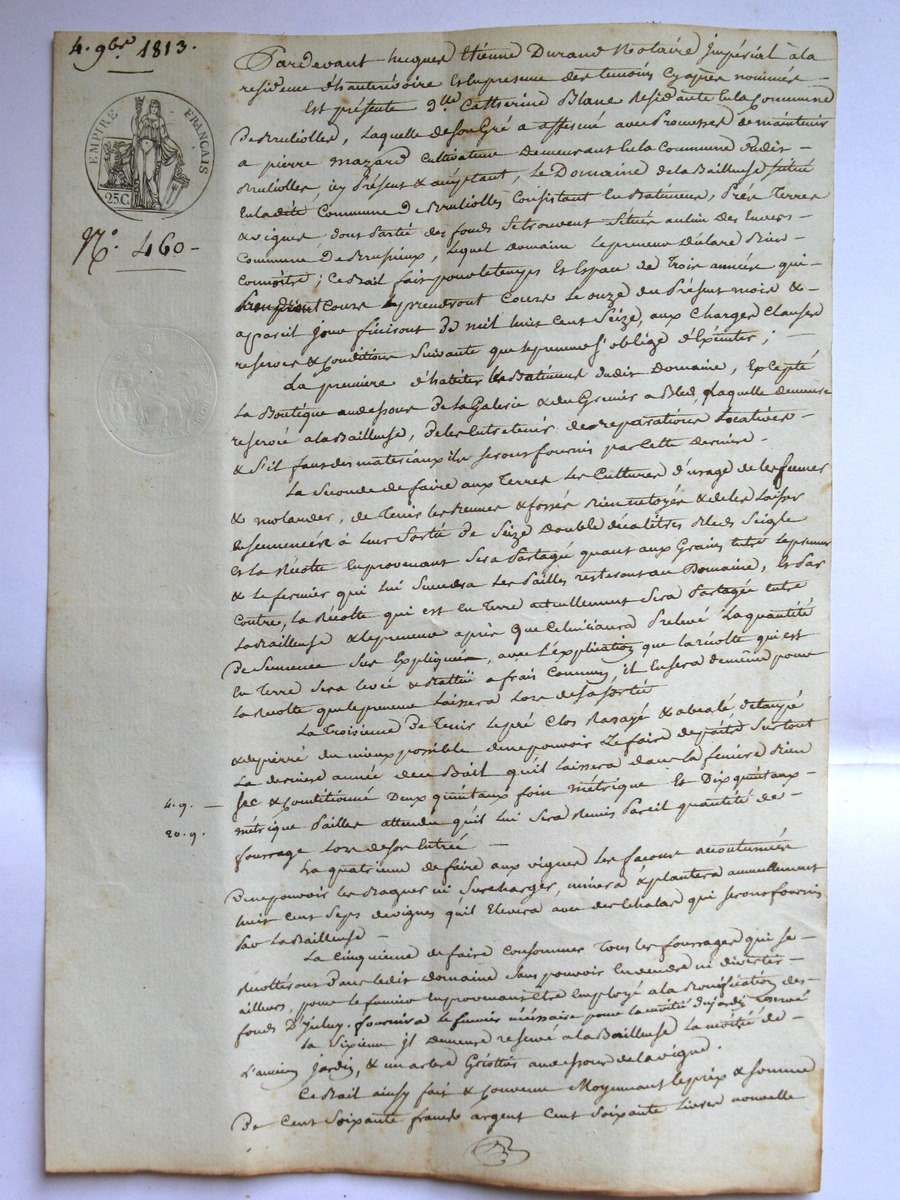 4. 9bre 1813.
EMPIRE FRANÇAIS
25C.
N.º 460 –
Pardevant hugues Etienne Durand Notaire Impérial à la
residence d'hauterivoire Et en presence des temoins cy après nommés
Est présente dlle Catherine Blanc Residante En la Commune
De Brullioles, Laquelle de Son Gré a affermé avec Promesse de maintenir
a pierre mazard Cultivateur Demeurant En la Commune dudit
Brullioles, icy Présent & acceptant, Le Domaine de la Bailleuse Situé
En la dite Commune de Brullioles Consistant En Batiments, Prés Terres
& vignes, dont Partie des fonds Se trouvent Situés
Commune de Brussieux, Lequel Domaine Le preneur déclare Bien
Connoître; Ce Bail fait pour le temps Et Espace de Trois années qui
prendront Cours Le onze du Présent mois &
a pareil jour finiront De mil huit Cent Seize, aux Charges Clauses
reserves & Conditions Suivantes que le preneur S'oblige d'Exécuter;
La première d'habiter les Batiments dudit Domaine, Excepté
La Boutique au dessous De La Galerie & du Grenier a Bled, Laquelle demeure
reservée à la Bailleuse, De les Entretenir des reparations Locatives
& S'il faut des materiaux ils Seront fournis par Cette derniere.
La Seconde de faire aux Terres Les Cultures d'usage de les fumer
&, de Tenir les & fossés Bien netoyés & de les Laisser
Ensemencés à Leur Sortie De Seize Double décalitres Bled Seigle
Et la Récolte En provenant Sera Partagée quant aux Grains Entre Le preneur
& Le fermier qui Lui Succedra Les Pailles resteront au Domaine, Et Par
Contre, La Récolte qui est En Terre actuellement Sera Partagée Entre
La Bailleuse & Le preneur après que Celui aura Prelevé La quantité
De Semence Sus Expliquée, avec L'explication que la récolte qui est
En Terre Sera Levée & Battue a frais Communs, il En Sera de même pour
La Récolte que le preneur Laissera Lors de Sa Sortie
La Troisieme De Tenir Le pré Clos Razayé &
& depierré du mieux possible Sans pouvoir Le faire depaître Surtout
La derniere année de Ce Bail qu'il Laissera dans la feniere Bien
Sec & Conditionné Deux quintaux foin métrique Et Dix quintaux
métrique Pailles attendu qu'il Lui Sera Remis Pareil quantité de
fourrage Lors de Son Entrée
4. q. —
20. q.
La quatrieme de faire aux vignes Les façons accoutumées
Sans pouvoir les ni Surcharger, minera & plantera annuellement
huit Cent Seps de vignes qu'il Elevera avec des Echalas qui Seront fournis
Par La Bailleuse –
La Cinquieme de faire Consommer Tous Les fourrages qui Se
Recolteront Dans Ledit domaine Sans pouvoir En vendre ni divertir
ailleurs, pour le fumier En provenant Etre Employé a la Bonification des
fonds D'iceluy. fournira le fumier nécessaire pour la moitié du jardin reservé
La Sixieme il Demeure reservé a la Bailleuse La moitié de
L'ancien Jardin, & un arbre Griottier au dessous de la vigne.
Ce Bail ainsy fait & Convenu Moyennant Le prix & Somme
De Cent Soixante francs argent Cent Soixante Livres nouvelle